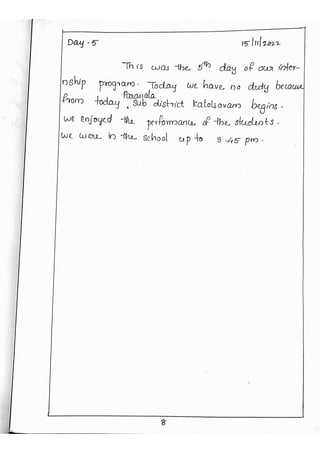 Day - 5 15/11/2022
This was the 5th day of our inter-
nship program. Today we have no duty because
from today, Sub district kalolsavam begins.
we enjoyed the performance of the students.
we were in the school up to 8.45 pm.
8